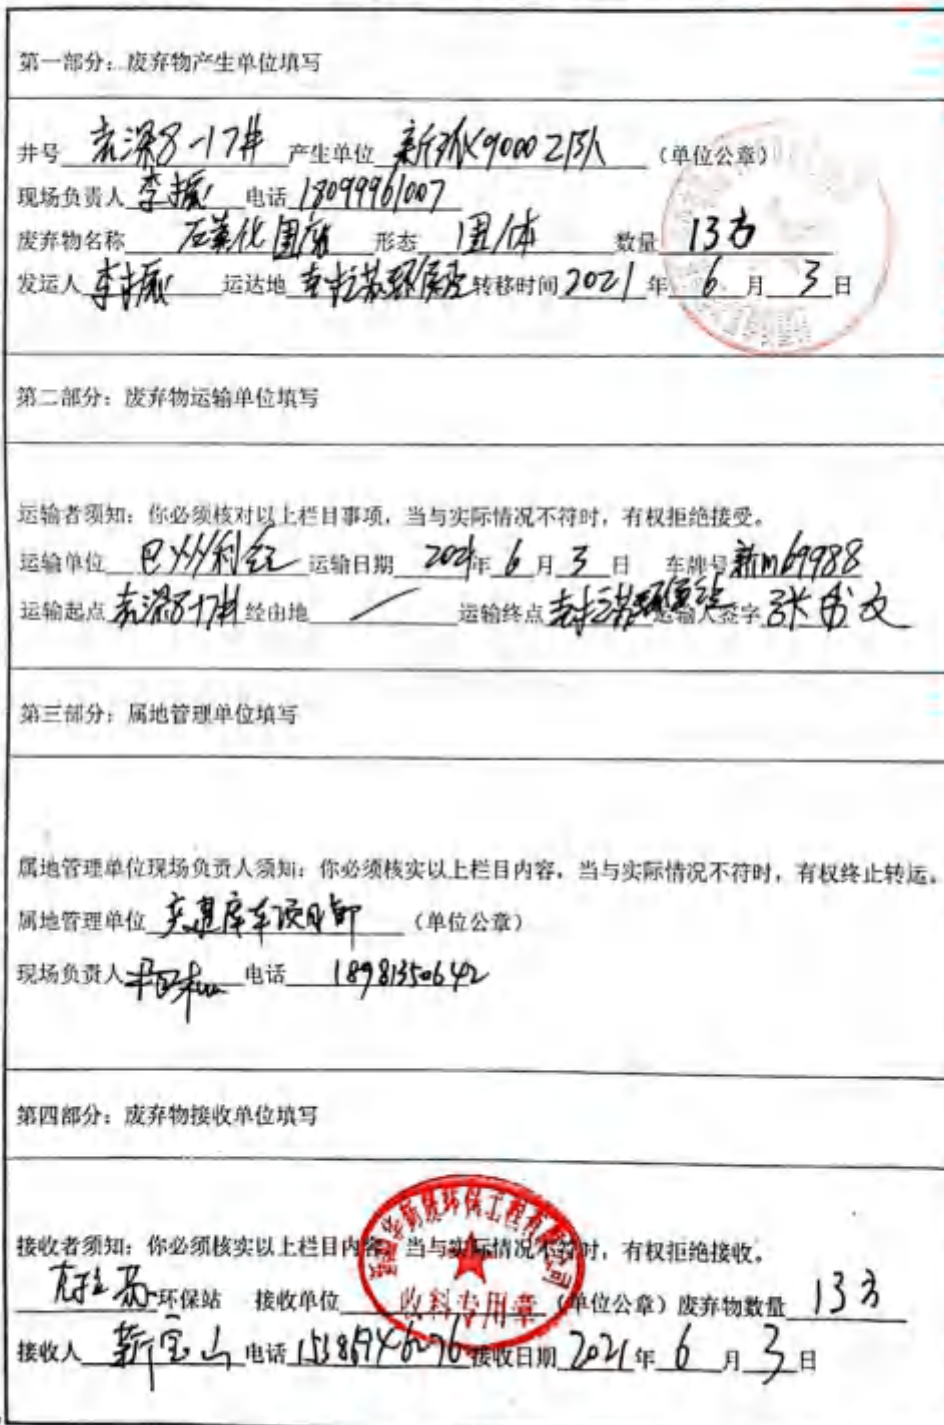 第一部分：废弃物产生单位填写
井号 克深8-17井 产生单位 新疆90002队 （单位公章）
现场负责人 李振 电话 18099961007
废弃物名称 石英化固废 形态 固体 数量 13方
发运人 李振 运达地 克拉苏环保站 转移时间 2021 年 6 月 3 日
第二部分：废弃物运输单位填写
运输者须知：你必须核对以上栏目事项，当与实际情况不符时，有权拒绝接受。
运输单位 巴州利 运输日期 2021年 6 月 3 日 车牌号 新M69988
运输起点 克深8-17井 经由地 / 运输终点 克拉苏环保站 运输人签字 张 文
第三部分：属地管理单位填写
属地管理单位现场负责人须知：你必须核实以上栏目内容，当与实际情况不符时，有权终止转运。
属地管理单位 库车项目部 （单位公章）
现场负责人 电话 18981350642
第四部分：废弃物接收单位填写
接收者须知：你必须核实以上栏目内容，当与实际情况不符时，有权拒绝接收。
克拉苏 环保站 接收单位 （单位公章）废弃物数量 13方
环保工程有限公司
收料专用章
接收人 靳宝山 电话 接收日期 2021 年 6 月 3 日